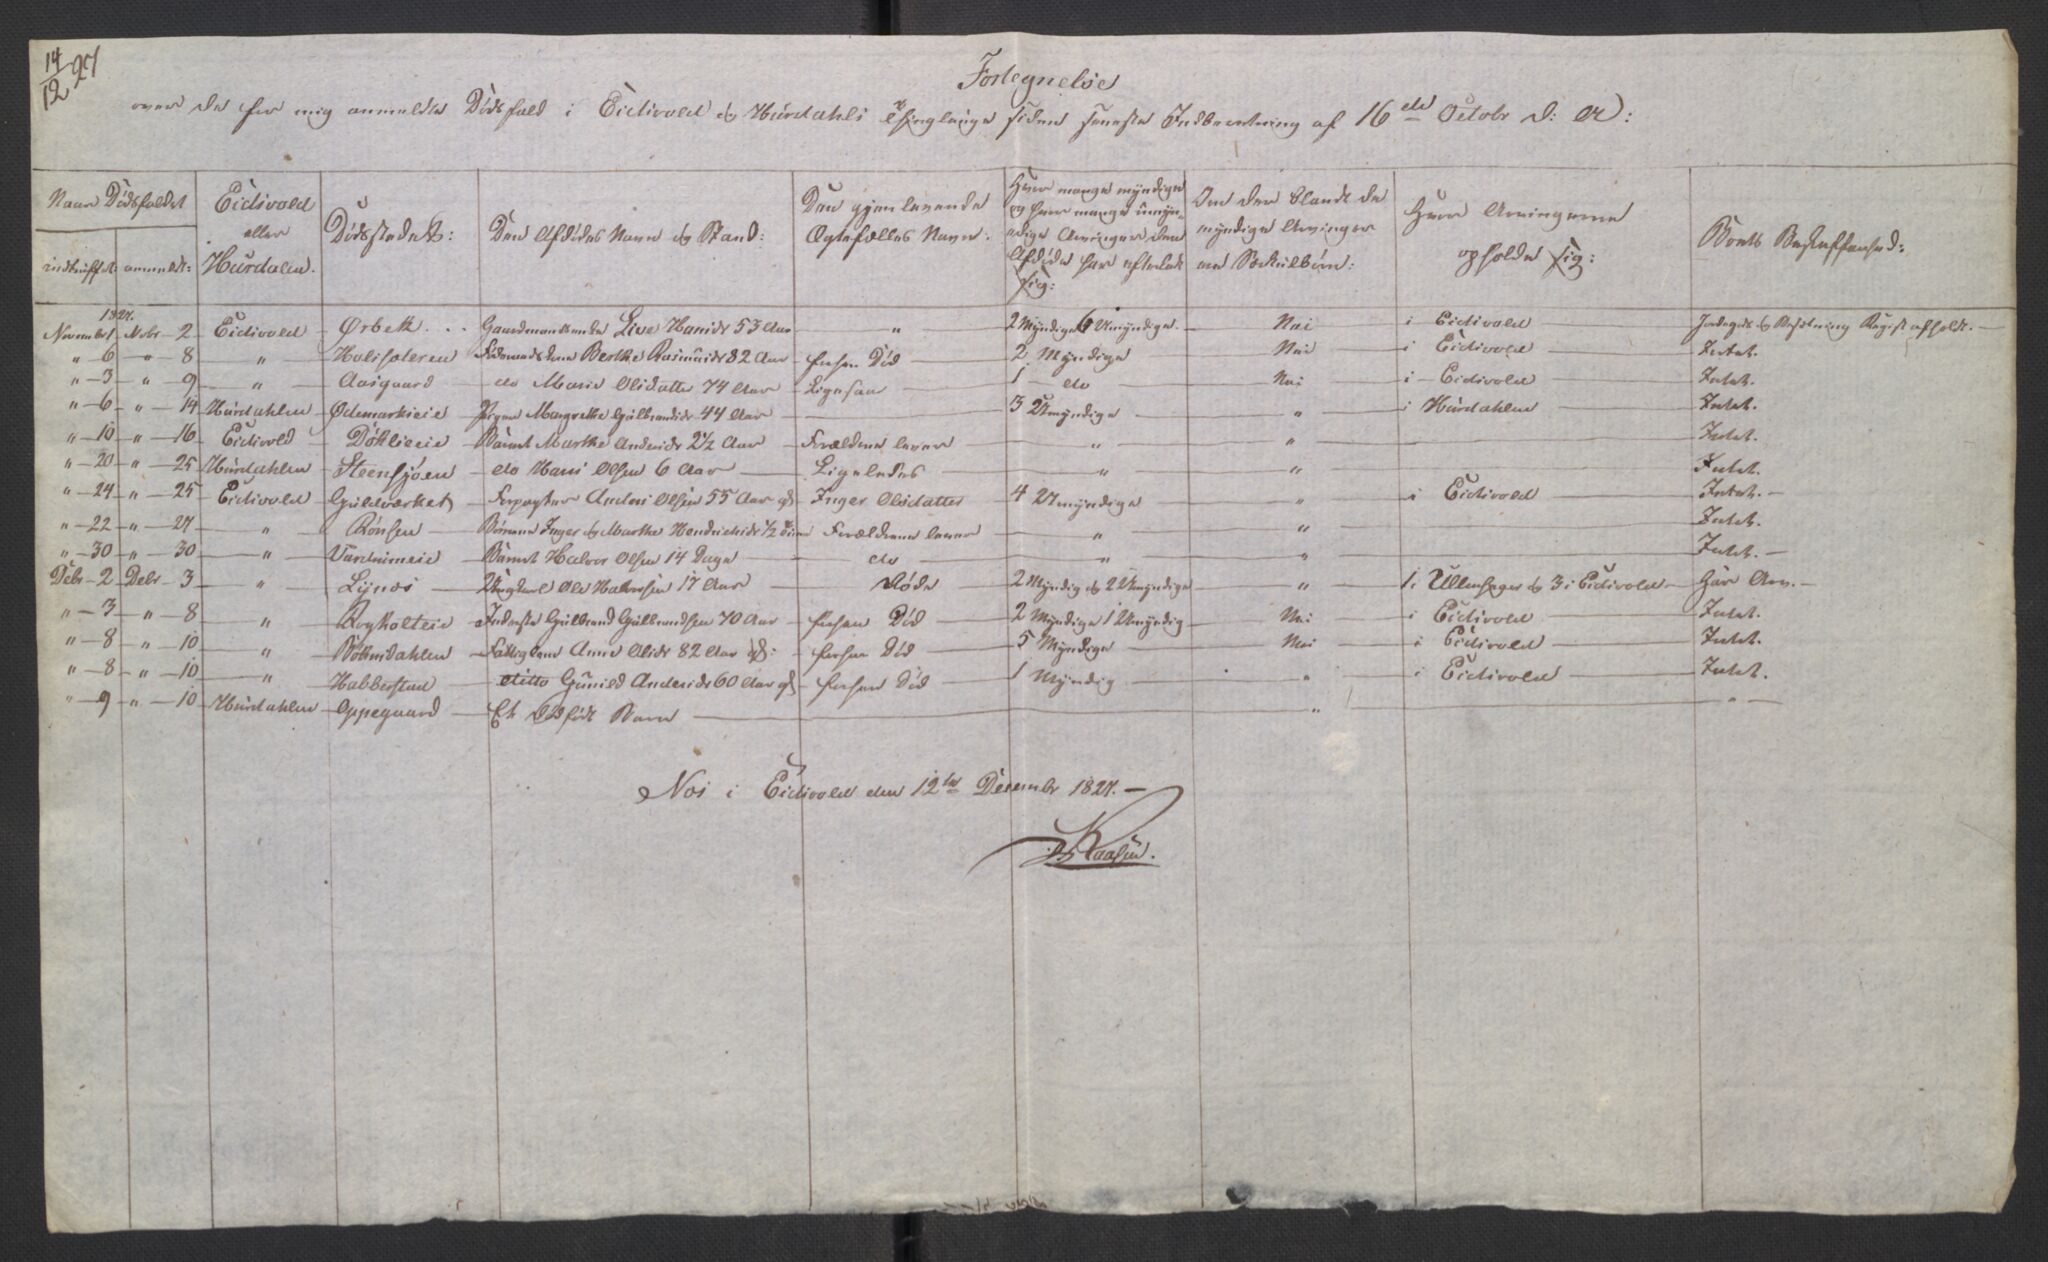 14/12 27
Fortegnelse
over de for mig anmeldte Dødsfald i Eidsvold og Hurdahls Thinglauge siden seneste Indberetning af 16de Octobr d: A:
Naar Dødsfaldet
indtruffet: anmeldt:
Eidsvold eller Hurdalen.
Dødsstedets:
Den Afdødes Navn og Stand:
Den gjenlevende Ægtefælles Navn:
Hvor mange myndige og hvor mange umyndige Arvinger den Afdøde har efterladt sig:
Om der blandt de myndige Arvinger ere
Hvor Arvingerne opholde sig:
Boets Beskaffenhed:
1827.
Novembr 1 Nobr 2 Eidsvold Ørbek Gaardmandsenke Live Hansdr 53 Aar " 2 Myndige 6 Umyndige Nei i Eidsvold Jordegods og Besætning Regist afholdt.
" 6 " 8 " Holisæteren Berthe Rasmusdr 82 Aar forhen Død 2 Myndige Nei i Eidsvold Intet.
" 3 " 9 " Aasgaard do Marie Olsdatter 74 Aar Ligesaa 1 do Nei i Eidsvold Intet.
" 6 " 14 Hurdahlen Ødemarkseie Pigen Margrethe Gulbrandsdr 44 Aar 3 Umyndige " i Hurdahlen Intet.
" 10 " 16 Eidsvold Barnet Marthe Andersdr 2½ Aar Forældrene lever " " Intet.
" 20 " 25 Hurdahlen Steensjøen do Hans Olsen 6 Aar Ligeledes " " Intet.
" 24 " 25 Eidsvold Guldverket Forpagter Anders Olsen 55 Aar gl Inger Olsdatter 4 Umyndige " i Eidsvold Intet.
" 22 " 27 " Rønsen Børnene Inger og Marthe Hendrichsdr ½ Forældrene lever " " Intet.
" 30 " 30 " Barnet Halvor Olsen 14 Dage do " " Intet.
Debr 2 Debr 3 " Lynæs Ungkarl Ole Halvorsen 17 Aar Døde 2 Myndig og 2 Umyndige " 1 i Ullensager og 3 i Eidsvold Har Arv.
" 3 " 8 " Inderste Gulbrand Gulbrandsen 70 Aar forhen Død 2 Myndige 1 Umyndig Nei i Eidsvold Intet.
" 8 " 10 " Bøttendahlen Fattiglem Anne Olsdr 82 Aar gl: forhen Død 5 Myndige Nei i Eidsvold Intet.
" 8 " 10 " Habberstad ditto Gunild Andersdr 60 Aar gl forhen Død 1 Myndig " i Eidsvold Intet.
" 9 " 10 Hurdahlen Oppegaard Et Dødfødt Barn " "
Næs i Eidsvold den 12te Decembr 1827.